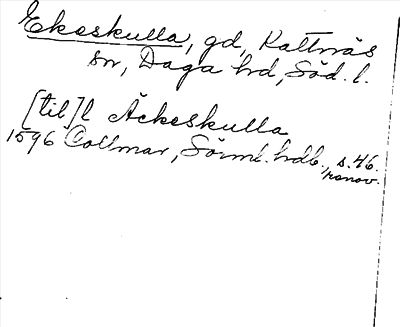 Ekeskulla, gd, Kattnäs
sn, Daga hd, Söd. l.
[til]l Äckeskulla
1596 Collmar, Sörml. hdb., s. 46.
renov.